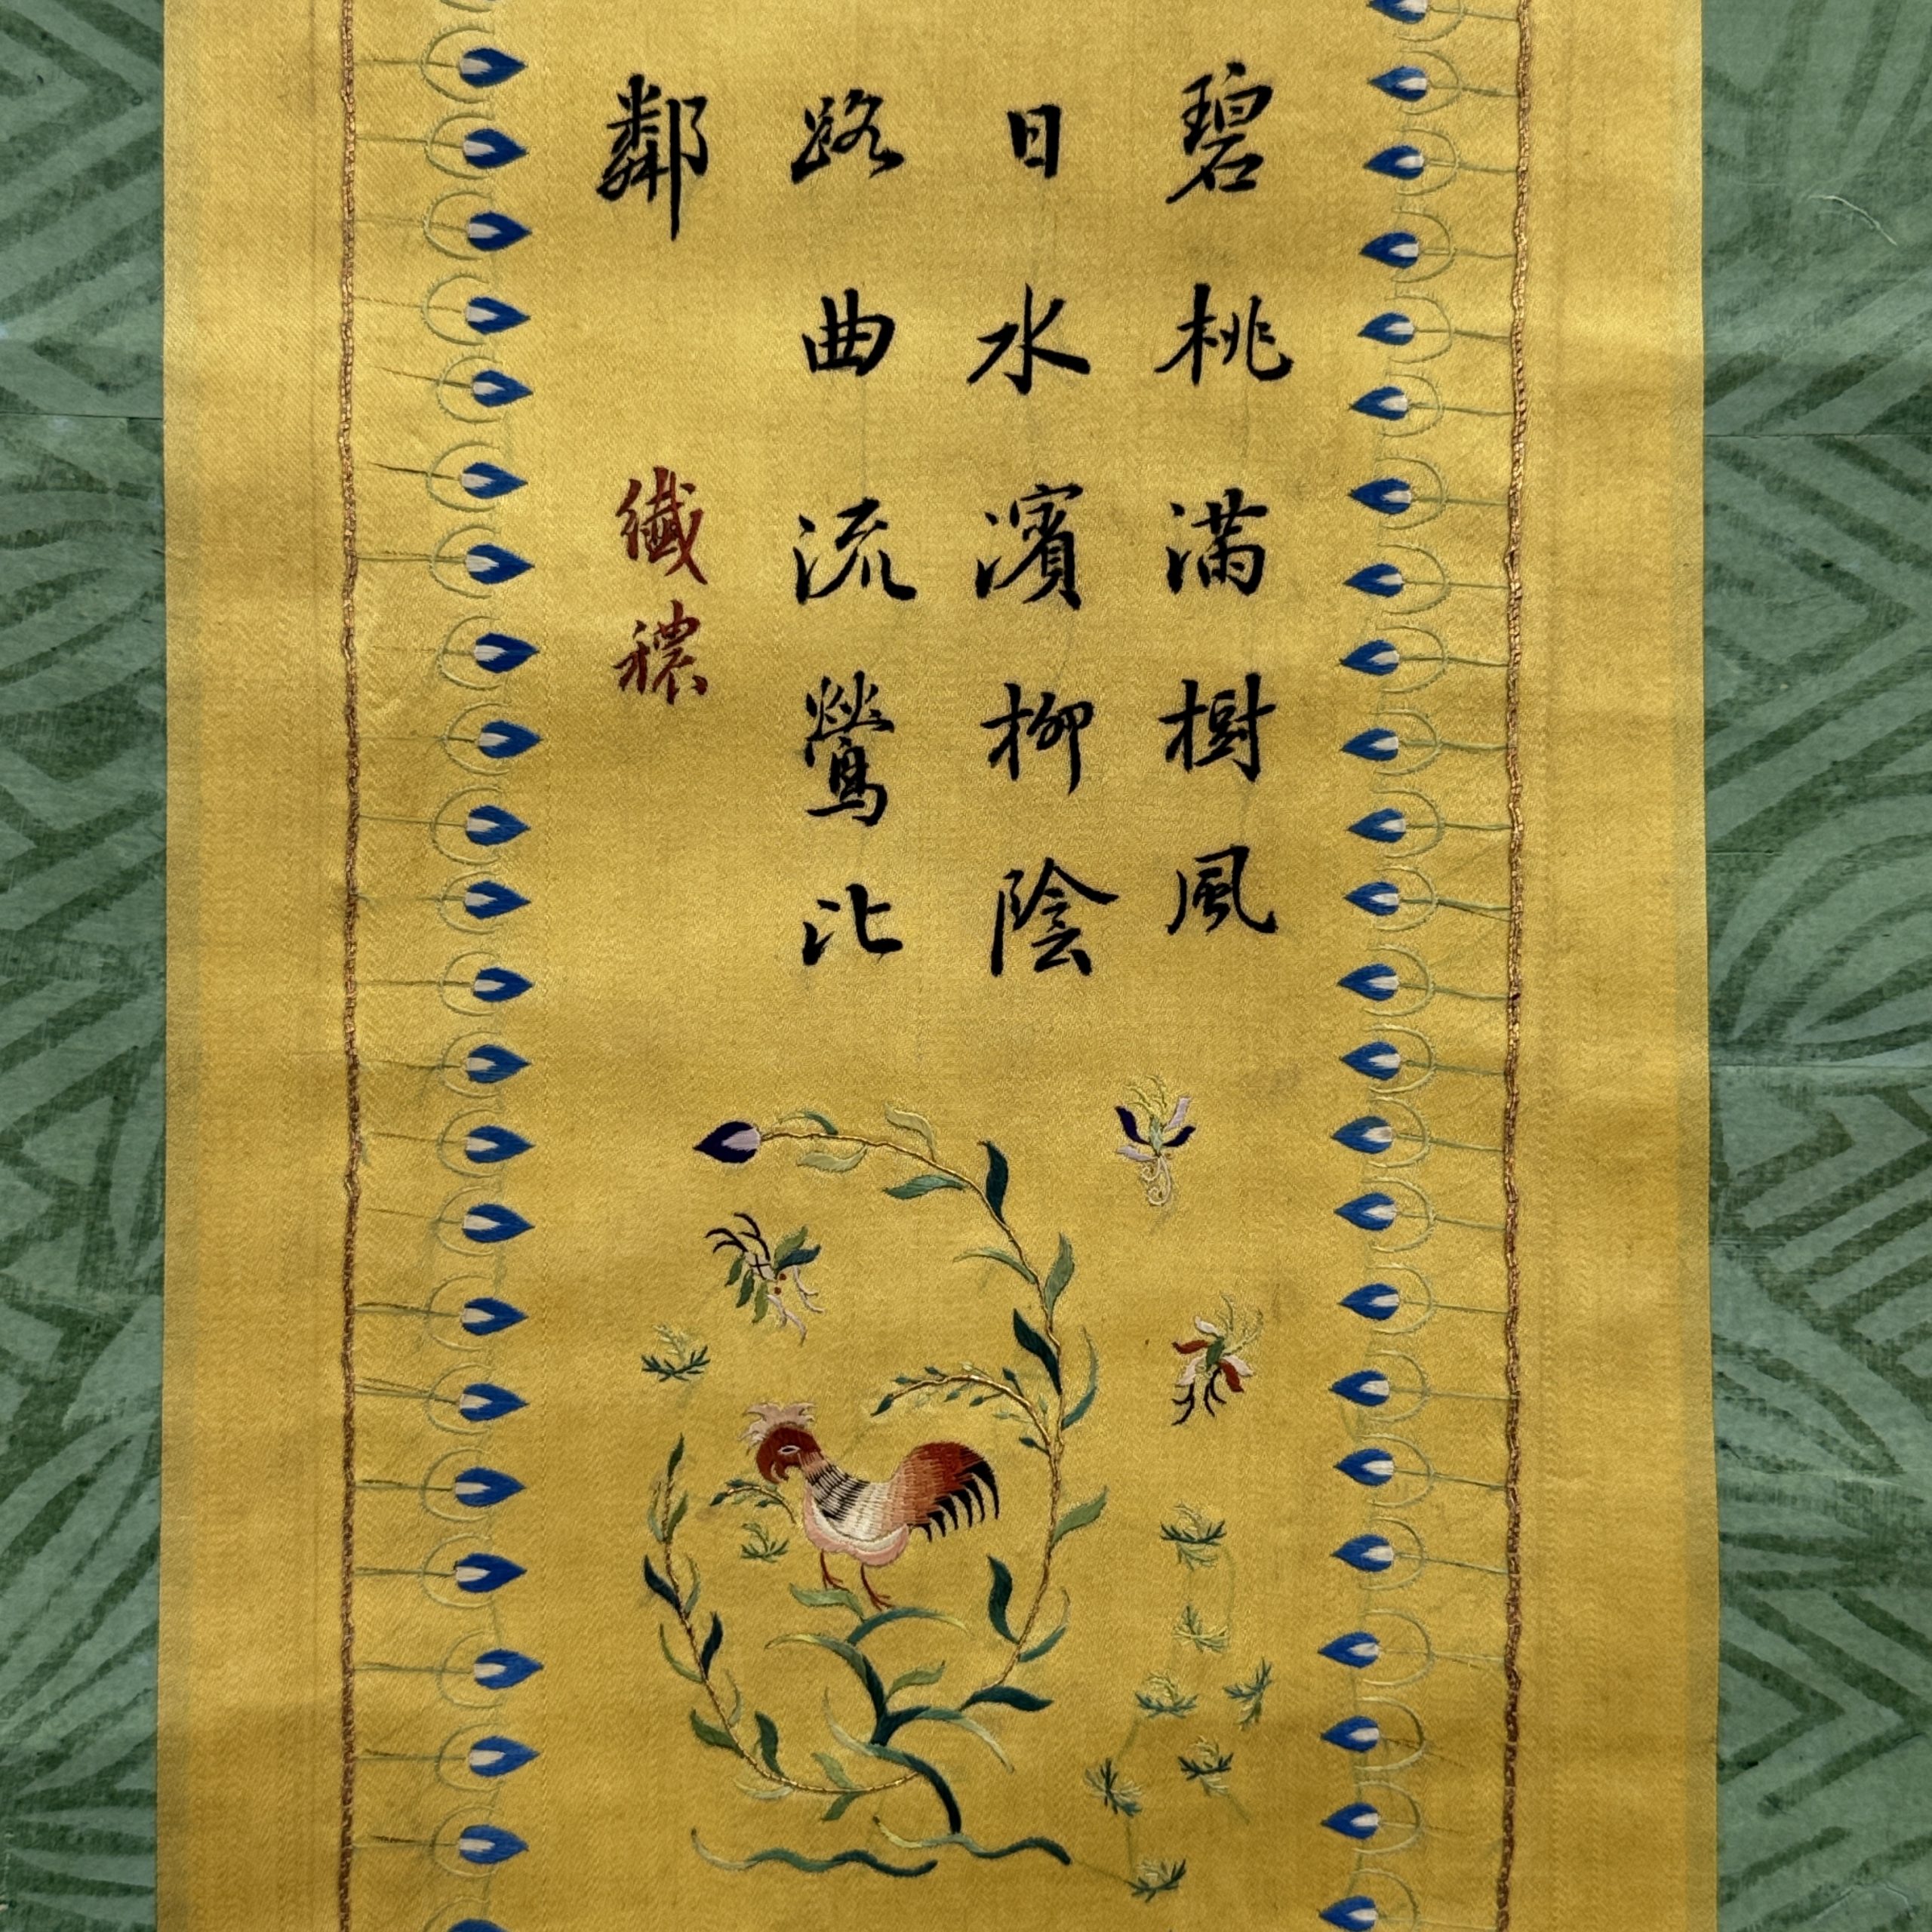 碧桃滿樹風
日水濱柳陰
路曲流鶯比
鄰
纖穠